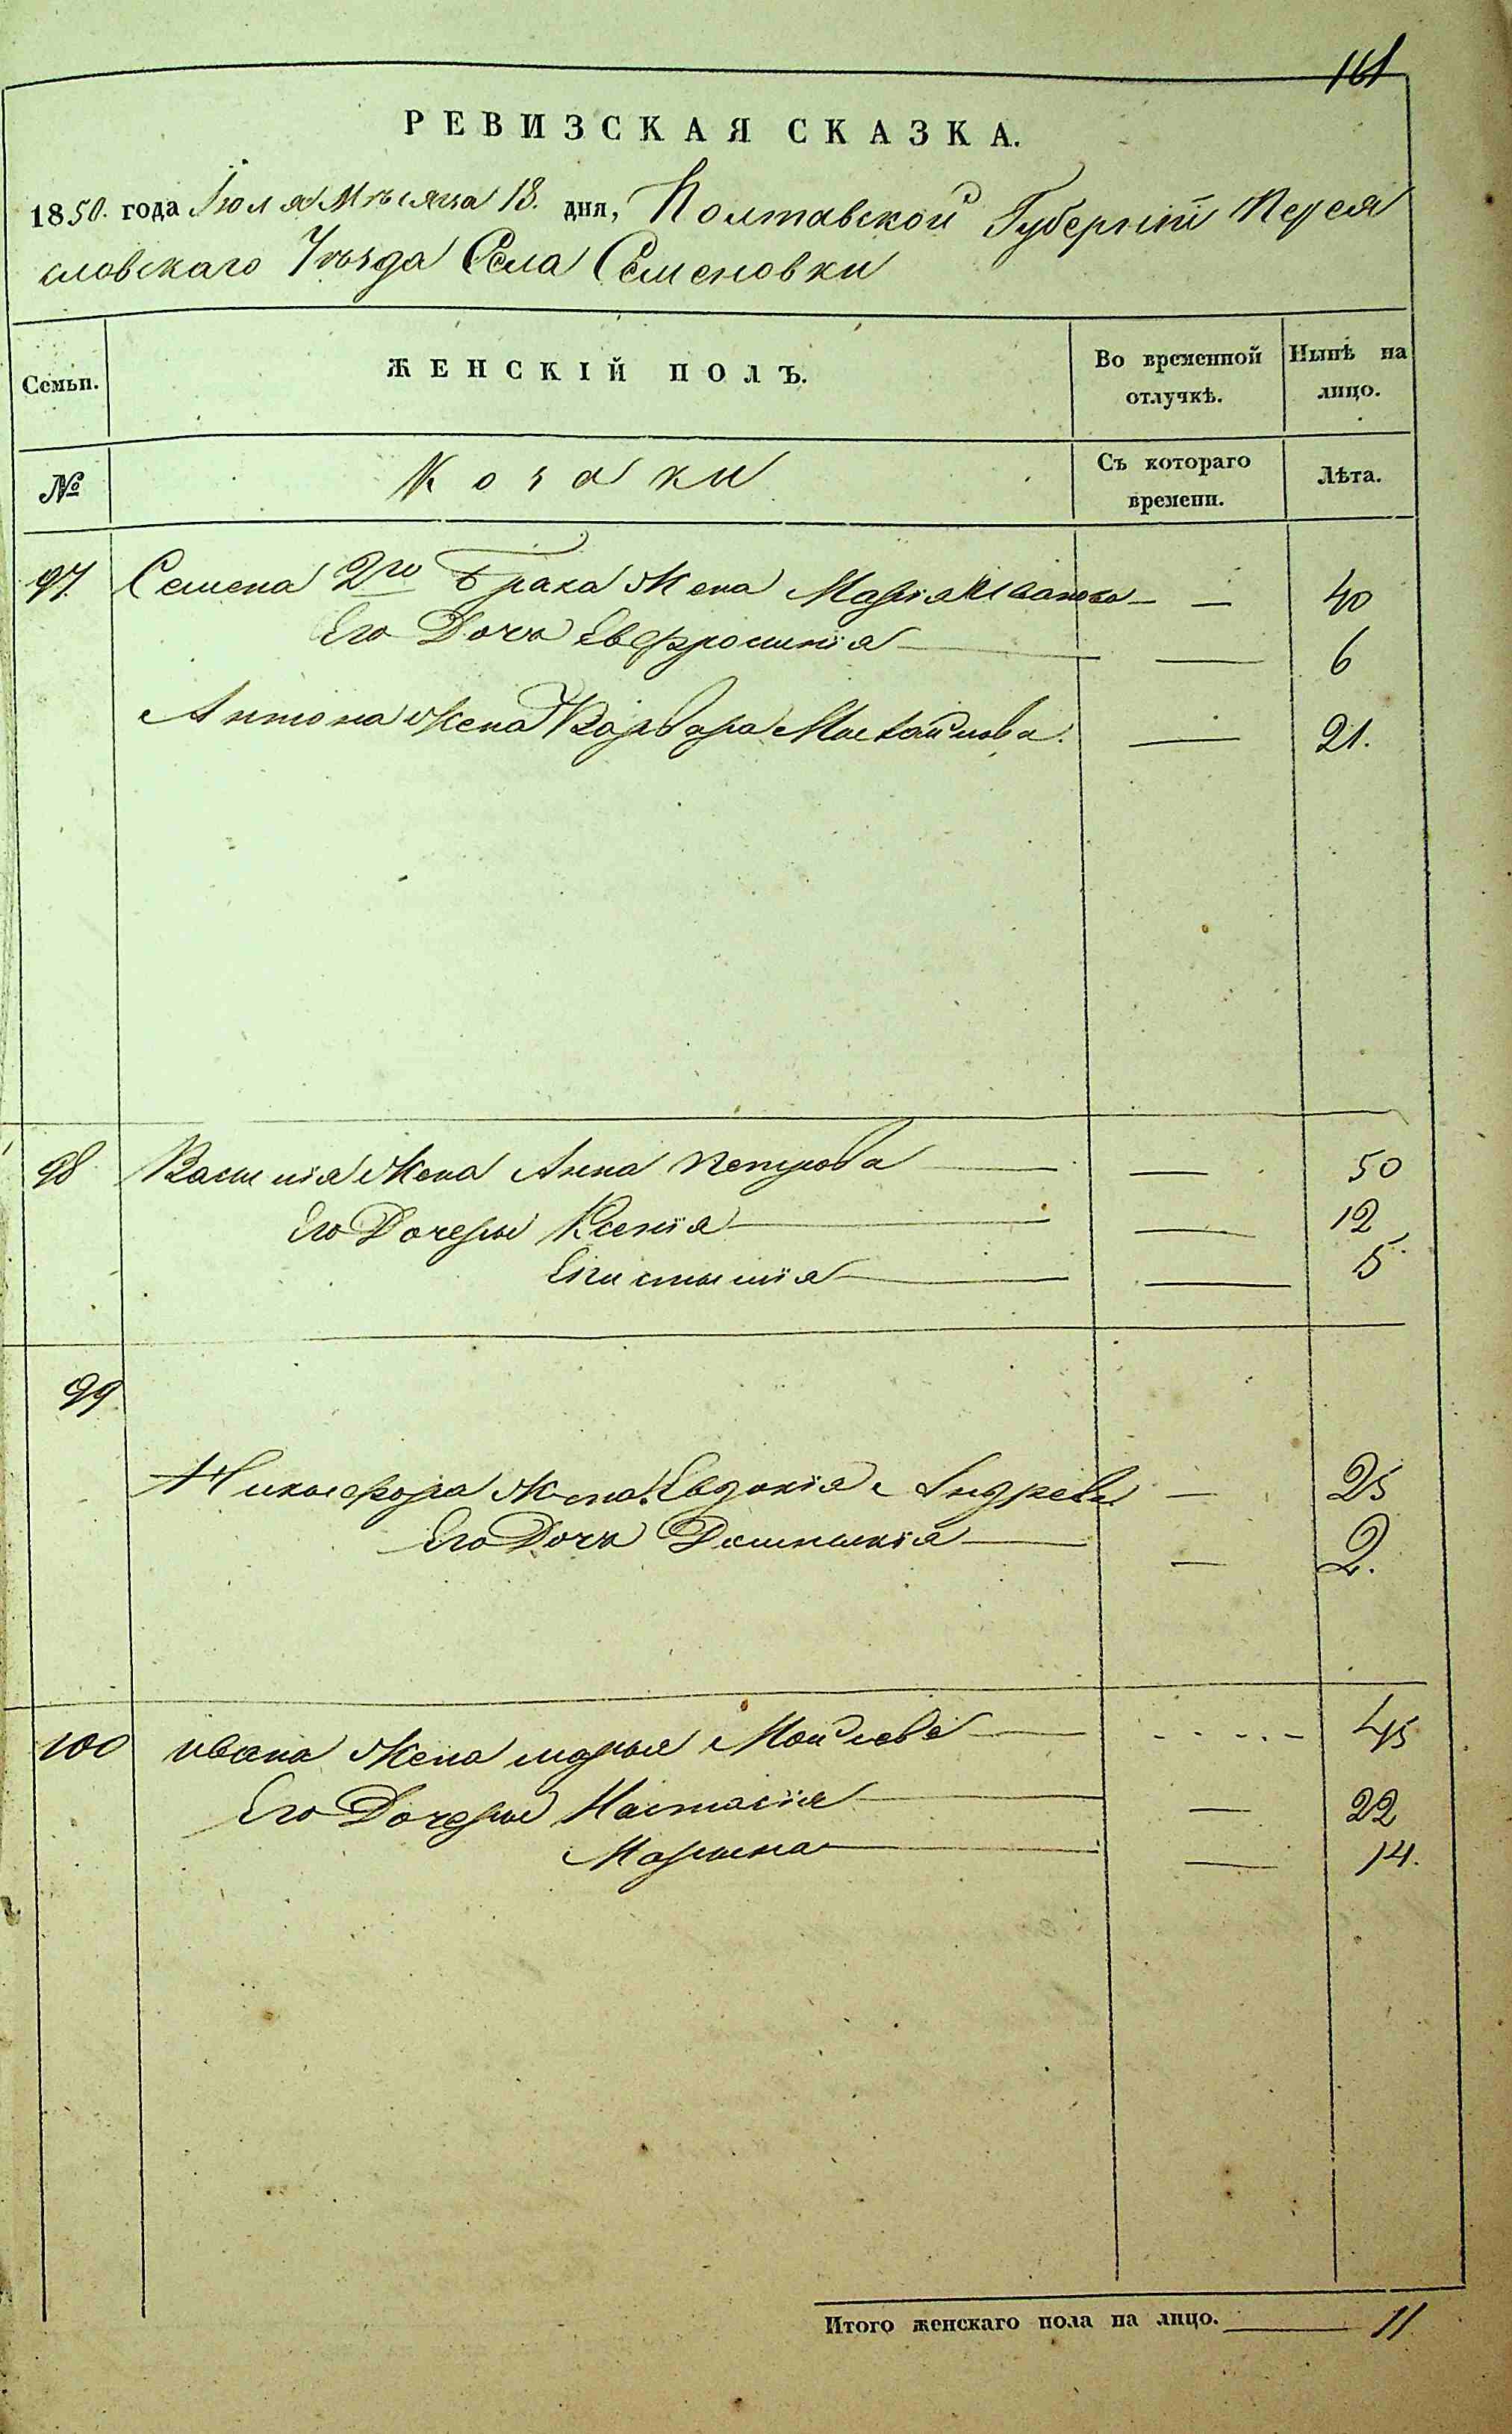 161
РЕВИЗСКАЯ СКАЗКА.
1850. года Іюля Мѣсяца 18. дня, Полтавской Губерніи Перея
словскаго Уѣзда Села Семеновки
Семьи. ЖЕНСКІЙ ПОЛЪ. Во временной отлучкѣ. Нынѣ на лицо.
№ Козаки Съ котораго времени. Лѣта.
97. Семена 2го Брака Жена Марія Иванова — — 40
Его Дочь Евфросинія — — 6
Антона Жена Варвара Михайлова. — 21.
98 Василія Жена Анна Петрова — — 50
Его Дочеры Ксенія — — 12
Епистимія — — 5
99
Никифора Жена Евдокія Андреева — 25
Его Дочь Домникія — — 2.
100 ивана Жена марья Моисеева — - - - - - 45
Его Дочеры Настасія — — 22
Марина — — 14.
Итого женскаго пола на лицо. 11